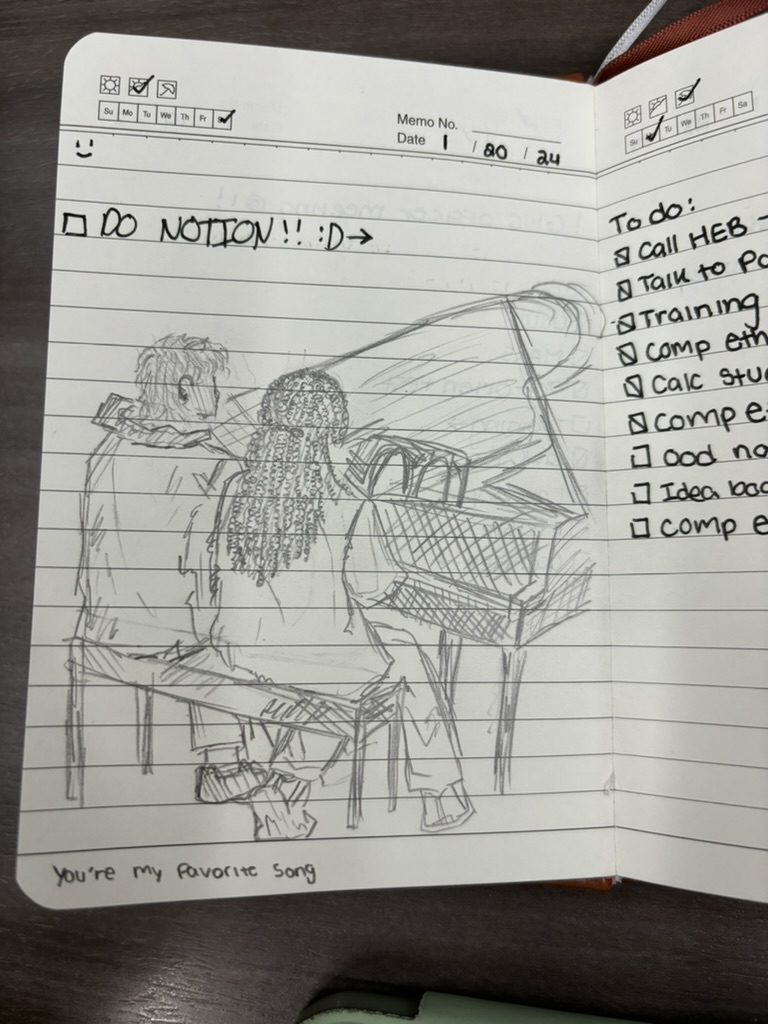 Su Mo Tu We Th Fr
Memo No.
Date 1 / 20 / 24
□ DO NOTION!! :D→
You're my favorite song
Su Tu We Th Fr Sa
To do:
☒ Call HEB -
☒ Talk to
☒ Training
☒ Comp
☒ Calc
☒ Comp
□ Ood
□ Idea
□ Comp